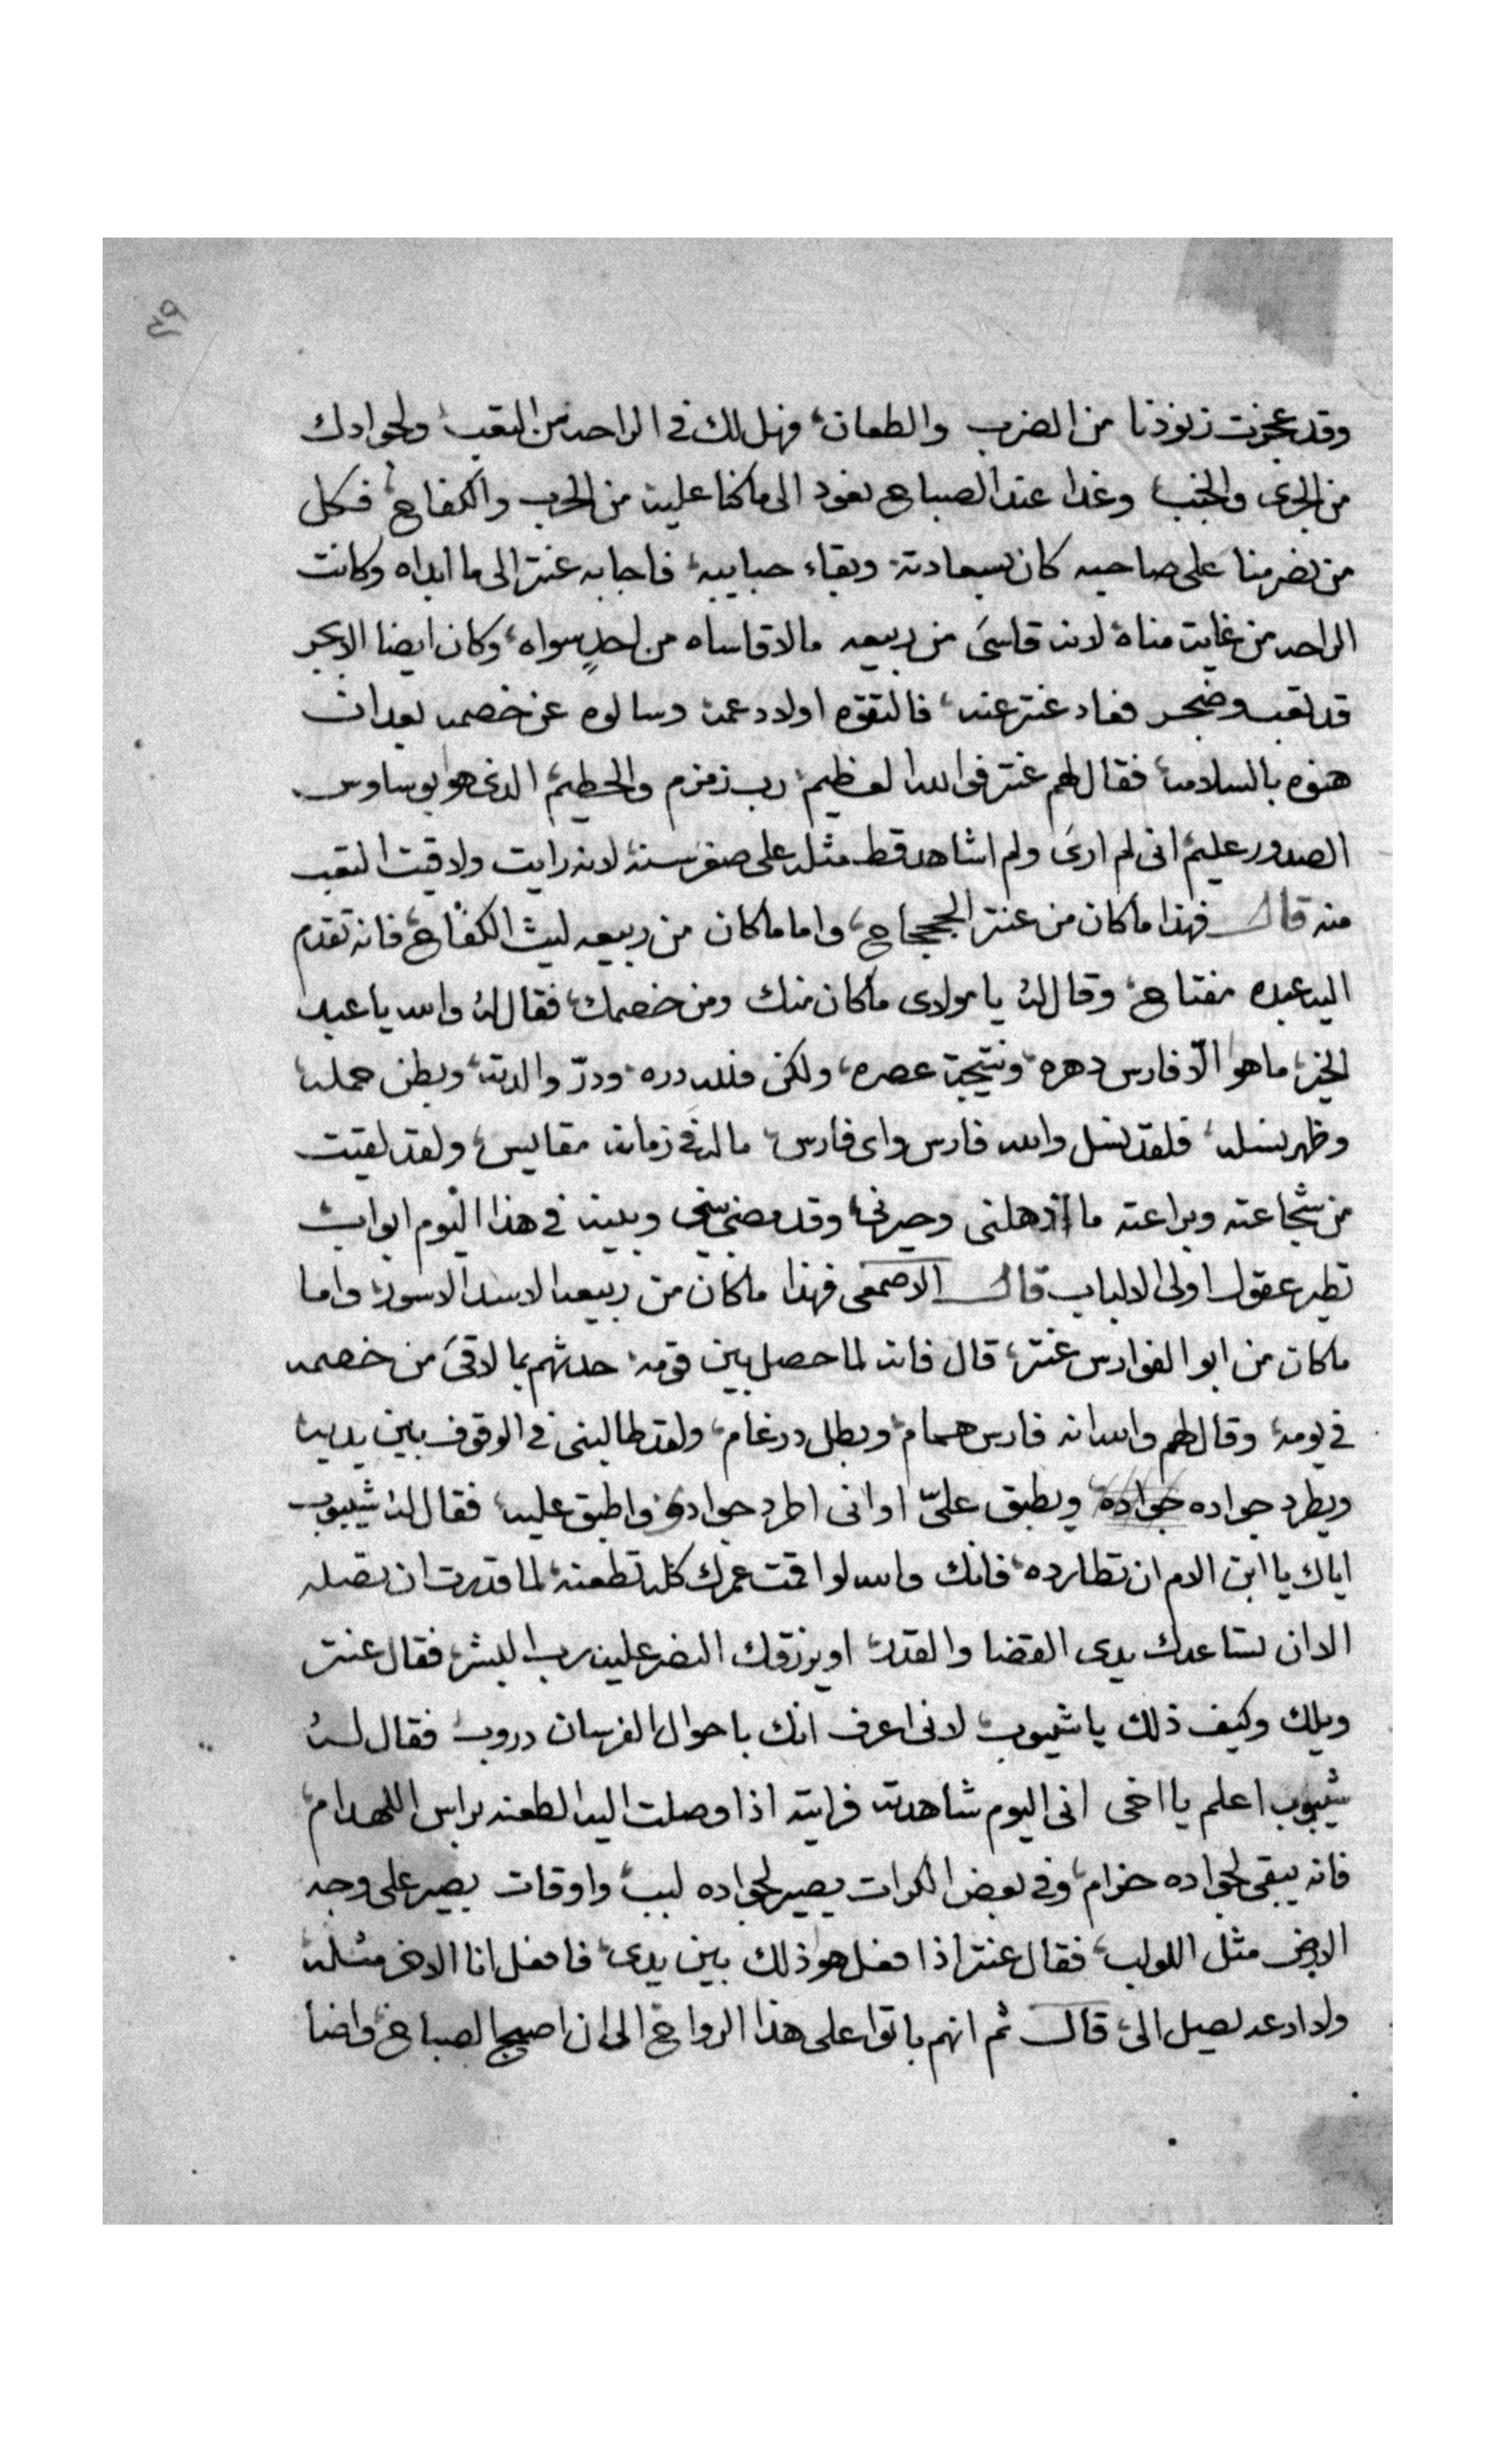 ٣٩
وقد عجزت زنوذنا من الضرب والطعان، فهل لك في الراحه من التعب، ولجوادك
من الجرى والخبب، وغدا عند الصباح نعود الى ما كنا عليه من الحرب والكفاح، فكل
من نصر منا على صاحبه كان بسعادته، وبقاء حبايبه، فاجابه عنتر الى ما ابداه وكانت
الراحه من غايت مناة، لانه قاسىَ من ربيعه مالا قاساه من احدٍ سواه، وكان ايضا الابجر
قد تعب وضجر فعاد عنتر عنه، فالتقوه اولاد عمه وسالوه عن خصمه بعد ان
هنوه بالسلامه، فقال لهم عنتر فوالله العظيم، رب زمزم والحطيم، الدى هو بوساوس
الصدور عليم، انى لم ارىَ ولم اشاهد قط مثله على صغر سنة، لانه رايت ولاقيت التعب
منه قال فهذا ما كان من عنتر الجحجاح، واما ما كان من ربيعه ليث الكفاح، فانه تقدم
اليه عبده مفتاح، وقال له يا مولاى ما كان منك ومن خصمك، فقال له والله يا عبد
الخير، ما هو الّا فارس دهره، ونتيجة عصره، ولكن فلله دره، ودرّ والدته، وبطن حمله،
وظهر نسله، فلقد نسل والله فارس واى فارس، ماله في زمانه مقايس، ولقد لقيت
من شجاعته وبراعته ما اذهلنى وحيرنى، وقد مضى بينى وبينه في هذا اليوم ابواب
تطير عقول اولى الالباب قال الاصمعى فهذا ما كان من ربيعه الاسد الاسود، واما
ما كان من ابو الفوارس عنتر، قال فانه لما حصل بين قومه، حدثهم بما لاقىَ من خصمه
في يومه، وقال لهم والله انه فارس همام، وبطل درغام، ولقد طالبنى في الوقوف بين يديه
ويطرد جواده جواده ويطبق علىّ او انى اطرد جوادى واطبق عليه، فقال له شيبوب
اياك يا ابن الام ان تطارده، فانك والله لو اقمت عمرك كله تطعنه، لما قدرت ان تصله
الا ان تساعدك يدى القضا والقدر، او يرزقك النصر عليه رب البشر، فقال عنتر
ويلك وكيف ذلك يا شيبوب، لانى اعرف انك باحوال الفرسان دروب، فقال له
شيبوب اعلم يا اخى انى اليوم شاهدته فرايته اذا وصلت اليه الطعنه براس اللهدام،
فانه يبقى لجواده حزام، وفي بعض الكرات يصير لجواده لبب، واوقات يصير على وجه
الارض مثل اللولب، فقال عنتر اذا فعل هو ذلك بين يدى، فافعل انا الاخر مثله،
ولا ادعه يصل الىَ، قال ثم انهم باتوا على هذا الرواح، الى ان اصبح الصباح، واضا